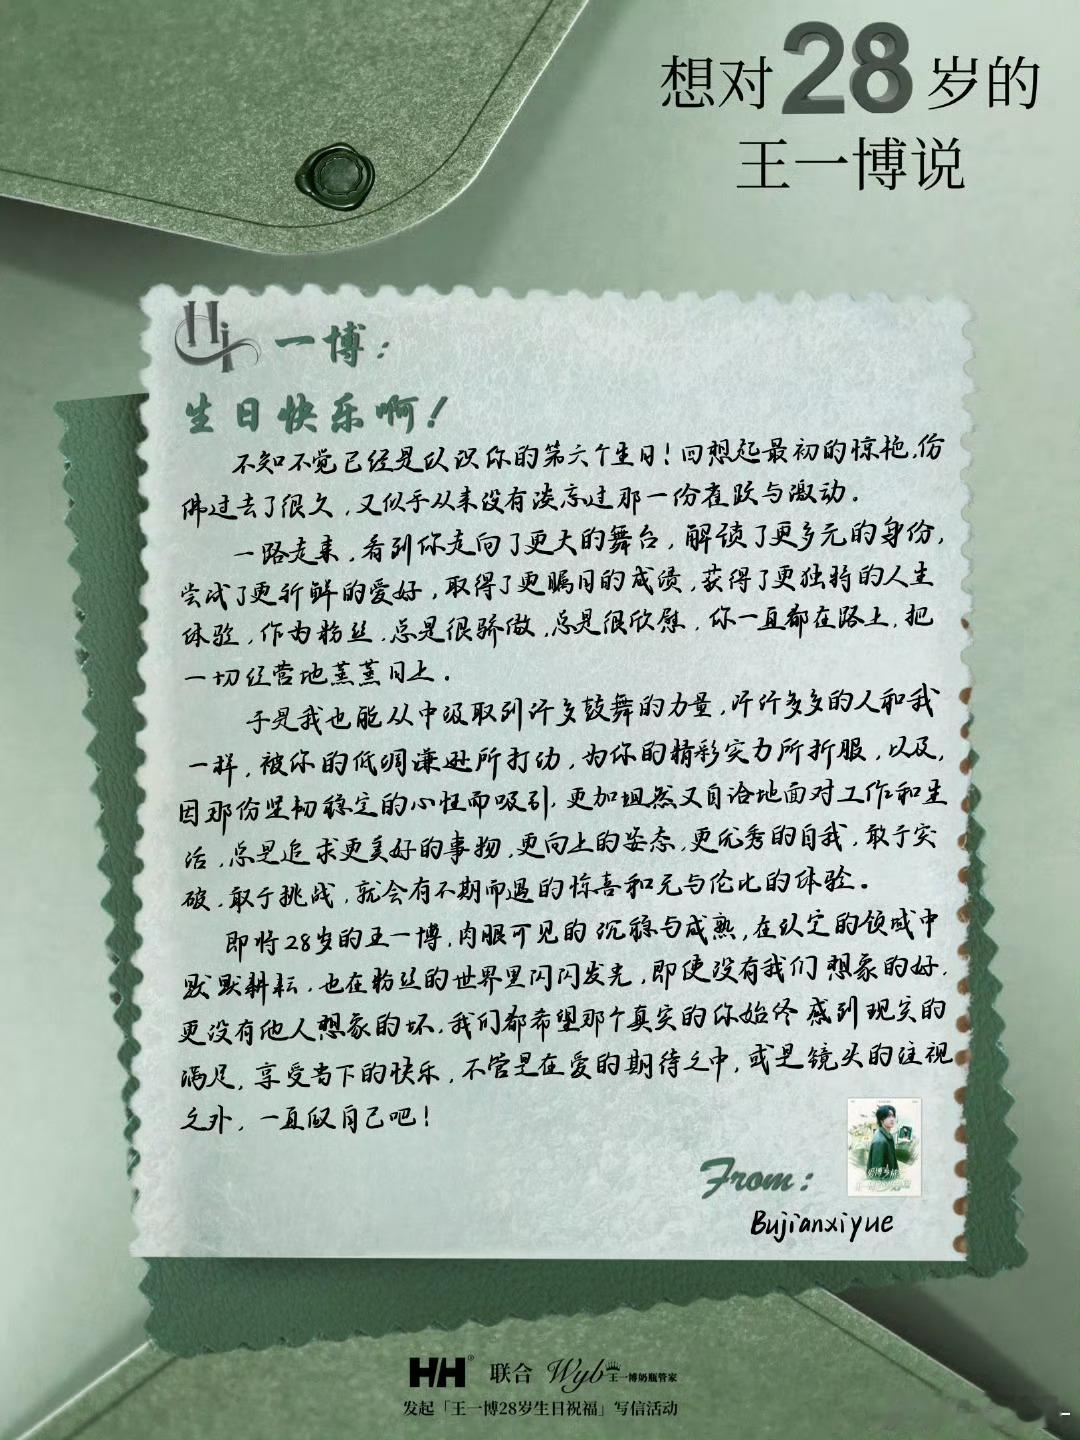 想对28岁的
王一博说
Hi 一博：
生日快乐啊！
不知不觉已经是认识你的第六个生日！回想起最初的惊艳，仿
佛过去了很久，又似乎从来没有淡忘过那一份雀跃与激动。
一路走来，看到你走向了更大的舞台，解锁了更多元的身份，
尝试了更新鲜的爱好，取得了更瞩目的成绩，获得了更独特的人生
体验，作为粉丝，总是很骄傲，总是很欣慰，你一直都在路上，把
一切经营地蒸蒸日上。
于是我也能从中汲取到许多鼓舞的力量，许许多多的人和我
一样，被你的低调谦逊所打动，为你的精彩实力所折服，以及，
因那份坚韧稳定的心性而吸引，更加坦然又自洽地面对工作和生
活，总是追求更美好的事物，更向上的姿态，更优秀的自我，敢于突
破，敢于挑战，就会有不期而遇的惊喜和无与伦比的体验。
即将28岁的王一博，肉眼可见的沉稳与成熟，在认定的领域中
默默耕耘，也在粉丝的世界里闪闪发光，即使没有我们想象的好，
更没有他人想象的坏，我们都希望那个真实的你始终感到现实的
满足，享受当下的快乐，不管是在爱的期待之中，或是镜头的注视
之外，一直做自己吧！
From：
Bujianxiyue
HH® 联合 Wyb 王一博奶瓶管家
发起「王一博28岁生日祝福」写信活动